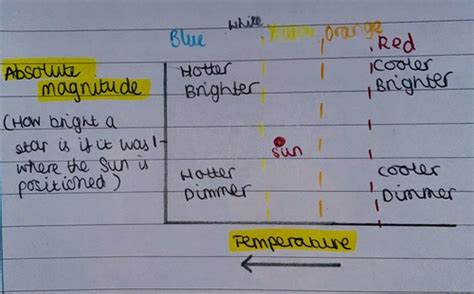 White
Blue Yellow Orange Red
Absolute magnitude
Hotter Brighter
Cooler Brighter
(How bright a
star is if it was
where the sun is
positioned)
Sun
Hotter Dimmer
Cooler Dimmer
Temperature